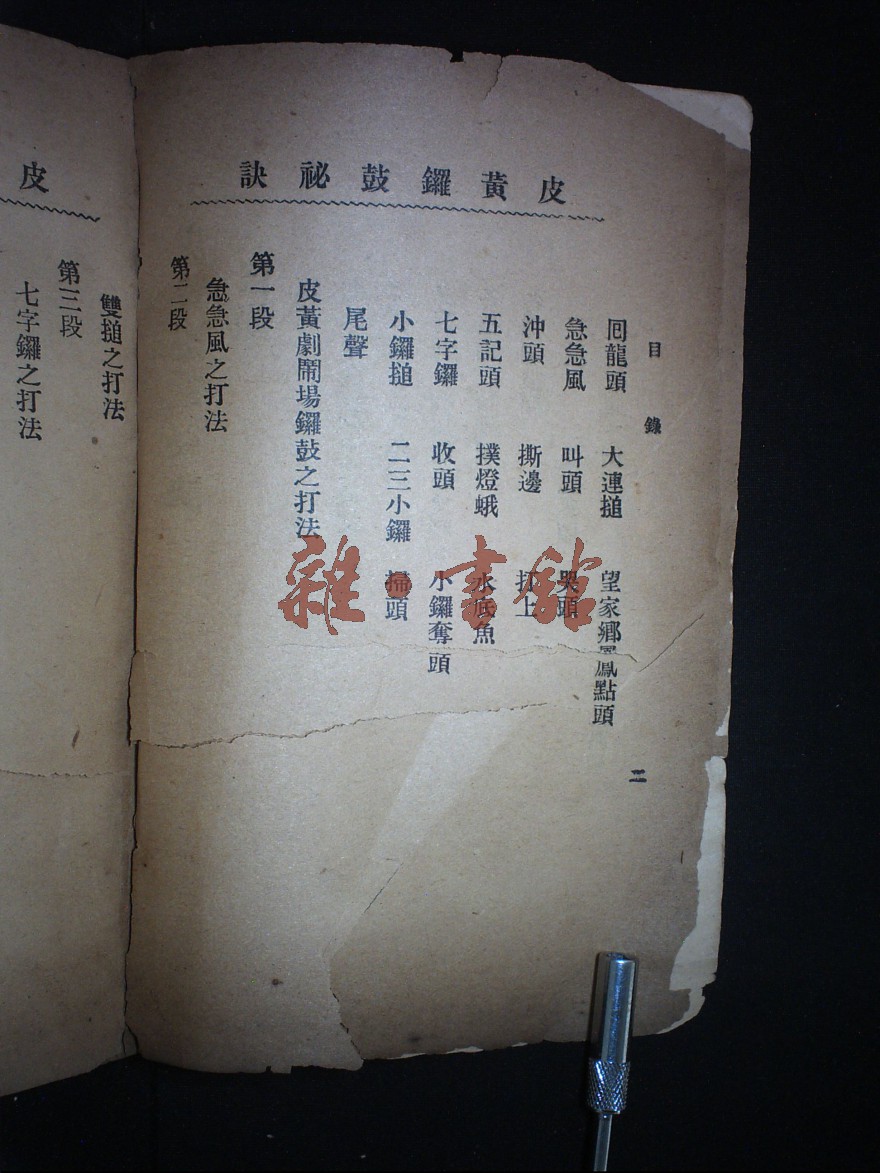 皮黃鑼鼓祕訣
目錄
二
囘龍頭 大連搥 望家鄉鳳點頭
急急風 叫頭 哭頭
沖頭 撕邊 打上
五記頭 撲燈蛾 水底魚
七字鑼 收頭 小鑼奪頭
小鑼搥 二三小鑼 掃頭
尾聲
皮黃劇鬧場鑼鼓之打法
第一段
急急風之打法
第二段
皮
雙搥之打法
第三段
七字鑼之打法
雜·書館